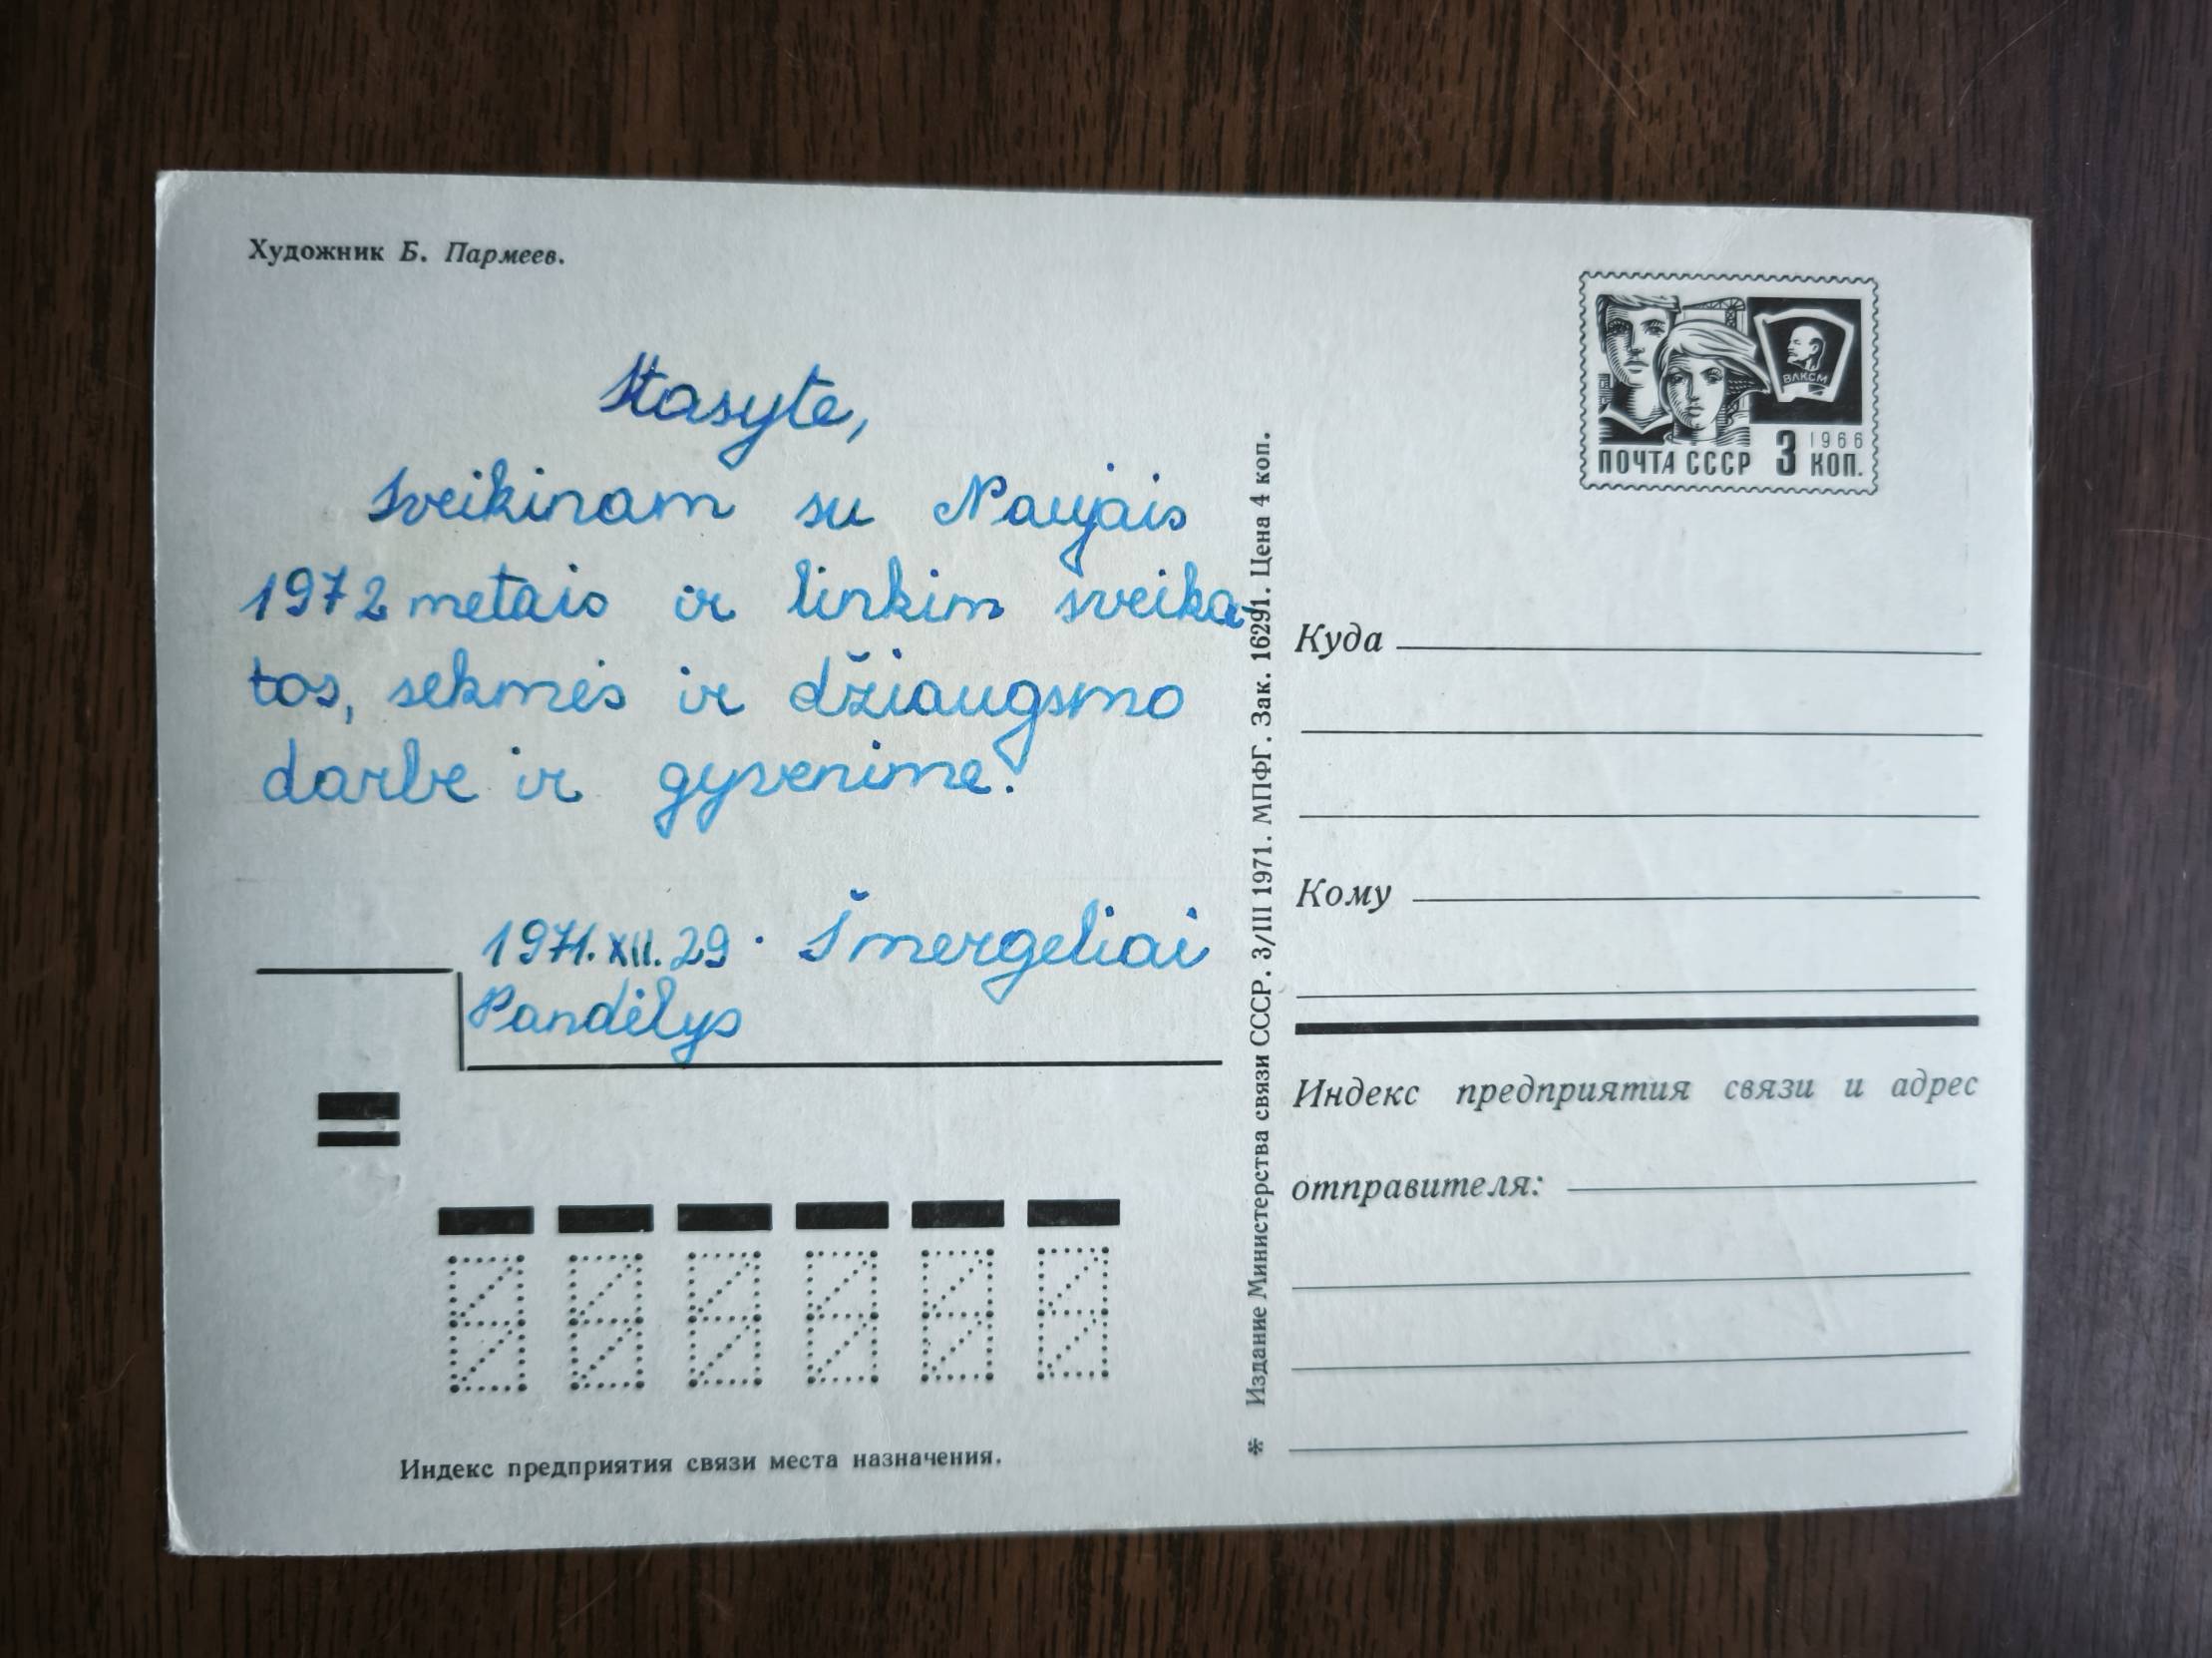 Художник Б. Пармеев.
Stasyte,
Sveikinam su Naujais
1972 metais ir linkim sveika-
tos, sekmės ir džiaugsmo
darbe ir gyvenime!
1971.XII.29. Šmergeliai
Pandėlys
Индекс предприятия связи места назначения.
* Издание Министерства связи СССР. 3/III 1971. МПФГ. Зак. 16291. Цена 4 коп.
ВЛКСМ
1966
ПОЧТА СССР 3 КОП.
Куда
Кому
Индекс предприятия связи и адрес
отправителя: